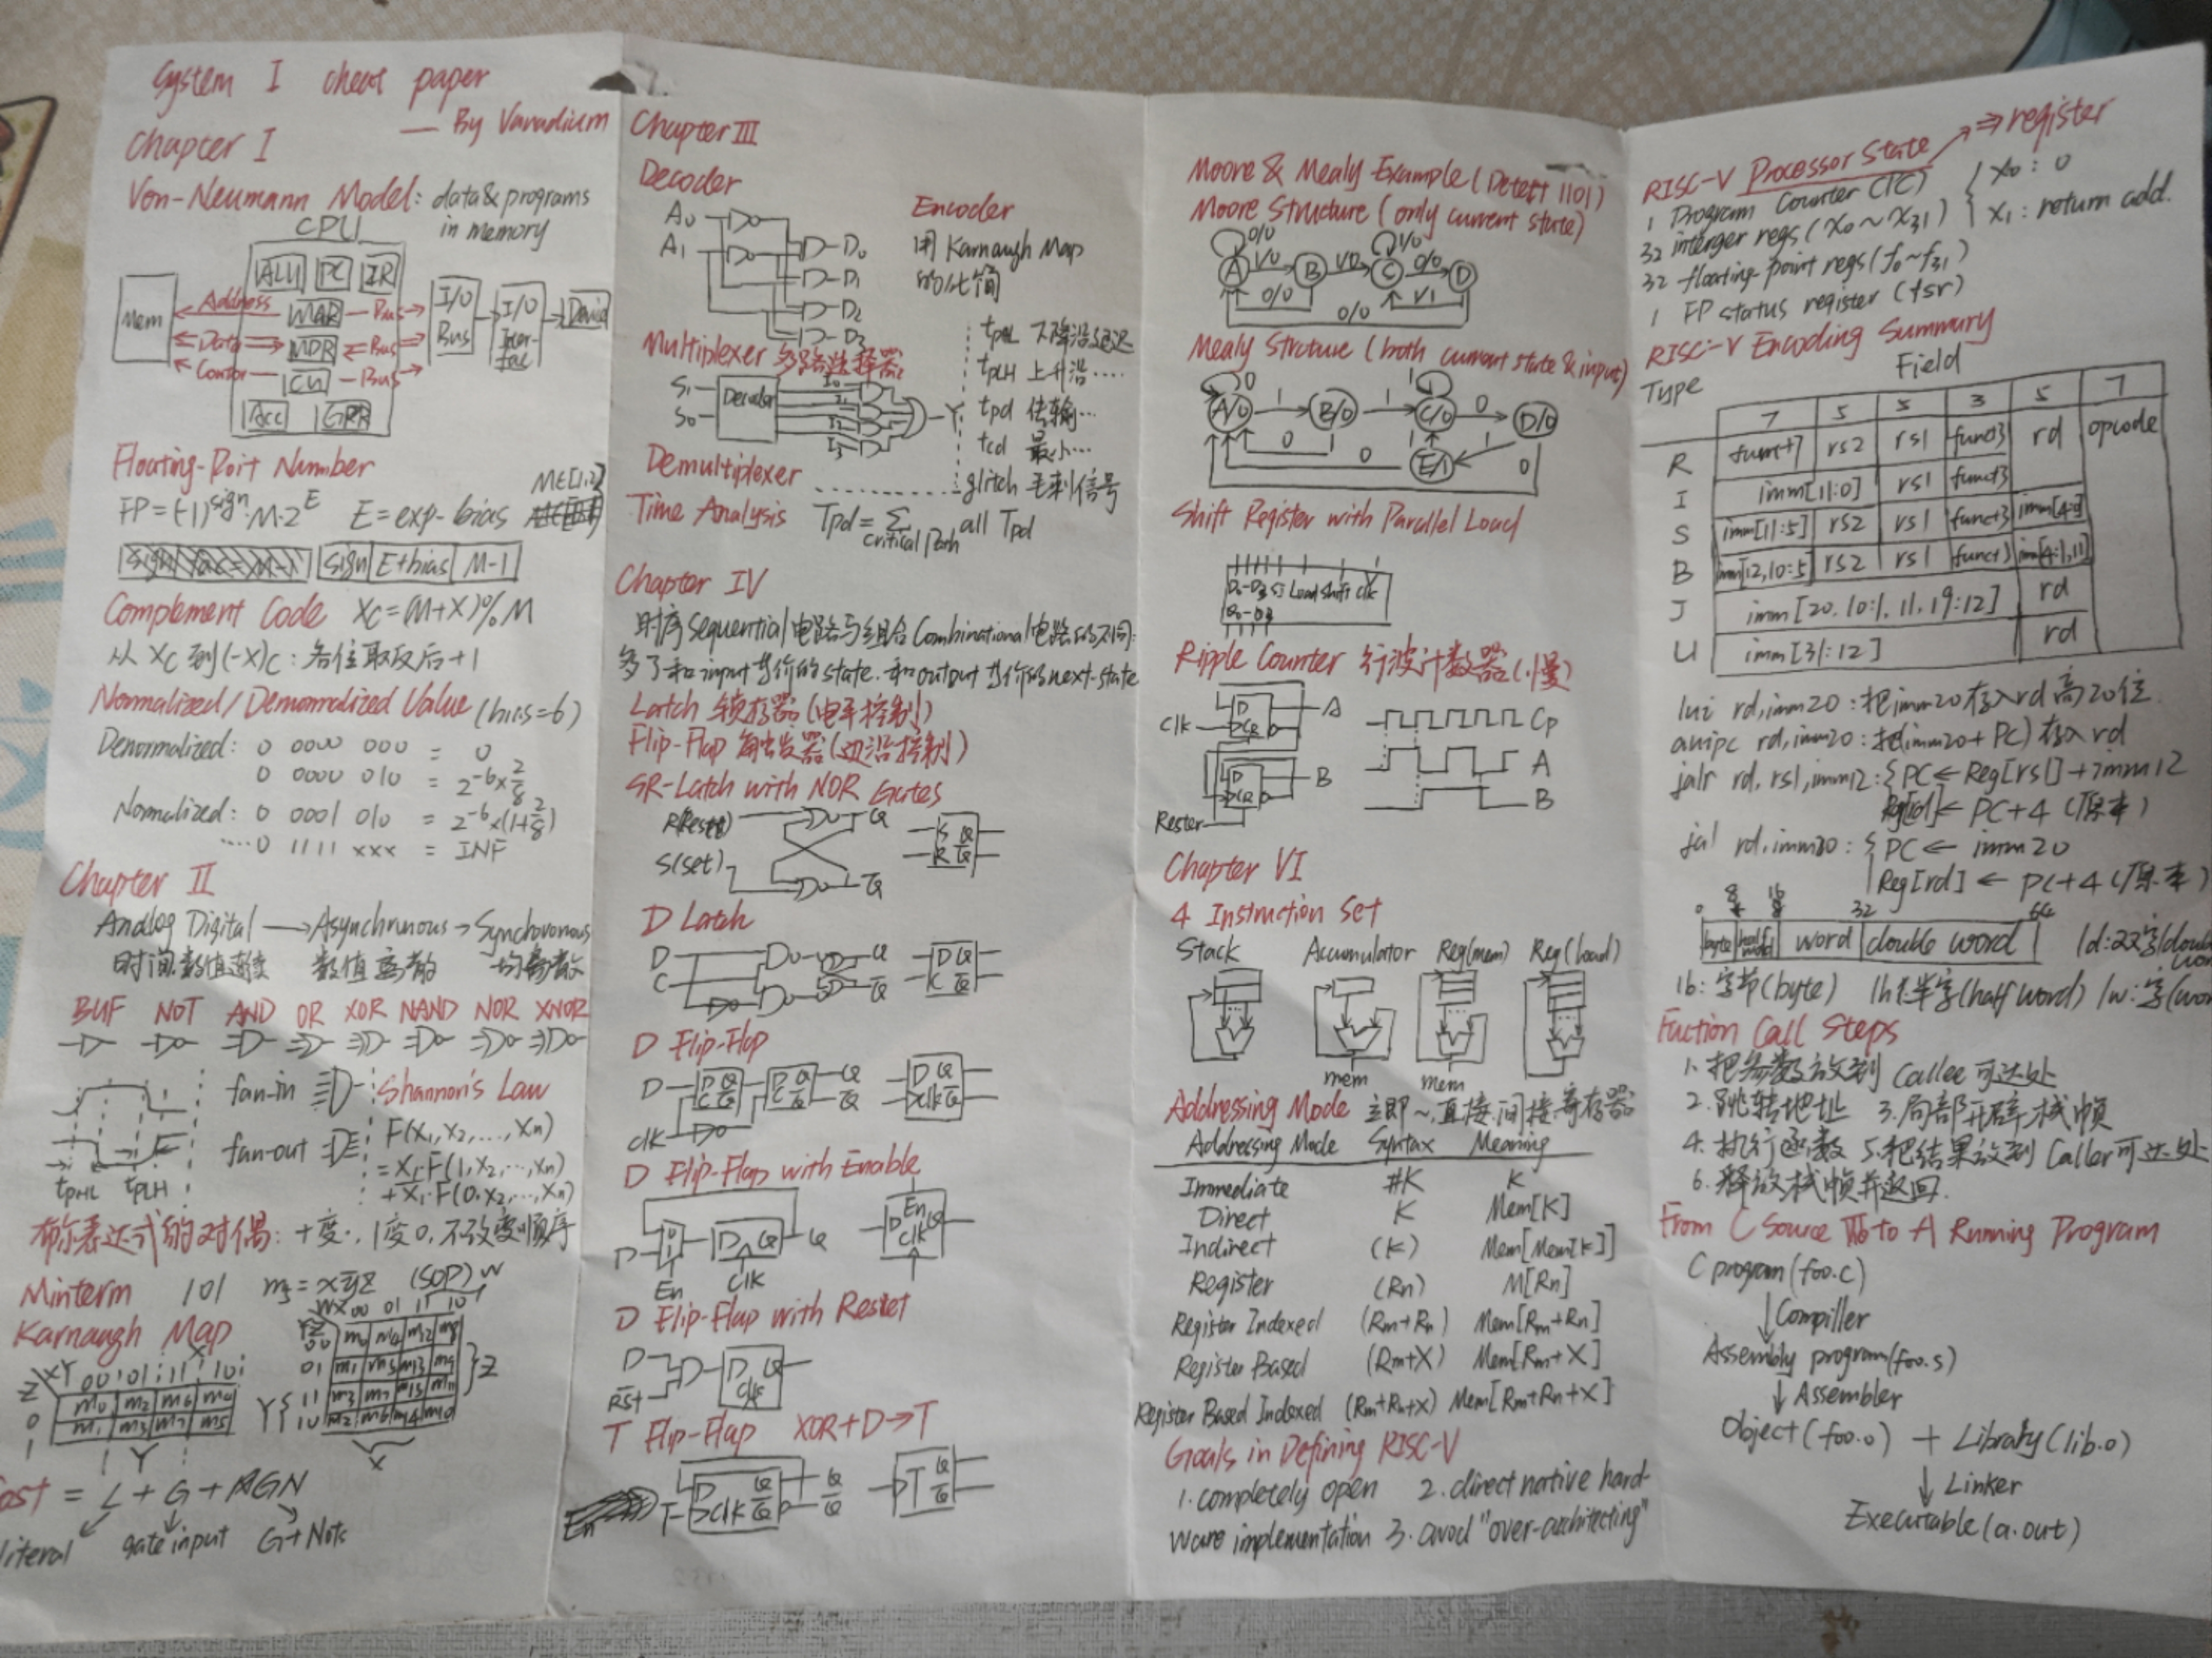 System I cheat paper
— By Vanadium
Chapter I
Von-Neumann Model: data & programs
in memory
CPU
ALU PC IR
Mem
Address MAR Bus
Data MDR Bus
Contor CU Bus
Acc GRR
I/O Bus
I/O Interfac
Device
Floating-Poit Number
FP=(-1)^sign·M·2^E E=exp-bias M∈[1,2)
sign E+bias M-1
Complement Code Xc=(M+X)%M
从 Xc 到(-X)c:各位取反后+1
Normalized/Denormalized Value (bias=6)
Denormalized: 0 0000 000 = 0
0 0000 010 = 2^-6×2/8
Normalized: 0 0001 010 = 2^-6×(1+2/8)
....0 1111 xxx = INF
Chapter II
Analog Digital → Asynchrunous → Synchoronous
时间.数值连续 数值离散 均离散
BUF NOT AND OR XOR NAND NOR XNOR
fan-in
fan-out
tpHL tpLH
Shannon's Law
F(X1,X2,...,Xn)
=X1·F(1,X2,...,Xn)
+X̅1·F(0,X2,...,Xn)
布尔表达式的对偶:+变·,1变0,不改变顺序
Minterm 101 m5=xy̅z (SOP)
Karnaugh Map
XY 00 01 11 10
Z
0 m0 m2 m6 m4
1 m1 m3 m7 m5
Y
WX 00 01 11 10
W
YZ
00 m0 m4 m12 m8
01 m1 m5 m13 m9
11 m3 m7 m15 m11
10 m2 m6 m14 m10
Z
Y
X
ost = L + G + GN
literal gate input G+Nots
Chapter III
Decoder
A0
A1
D0
D1
D2
D3
Encoder
用 Karnaugh Map
的化简
Multiplexer 多路选择器
S1
S0
Decoder
I0
I1
I2
I3
Y
tpHL 下降沿延迟
tpLH 上升沿....
tpd 传输...
tcd 最小...
glitch 毛刺信号
Demultiplexer
Time Analysis Tpd=Σ all Tpd
critical Path
Chapter IV
时序Sequential电路与组合Combinational电路的不同:
多了和input等价的state.和output等价的next-state
Latch 锁存器(电平控制)
Flip-Flap 触发器(边沿控制)
SR-Latch with NOR Gates
R(Reset) Q
S(set) Q̅
S Q
R Q̅
D Latch
D Q
C Q̅
D Q
C Q̅
D Flip-Flop
D
D Q
C Q̅
D Q
C Q̅
Q
Q̅
clk
D Q
clk Q̅
D Flip-Flap with Enable
D
0
1
En
D Q
clk
Q
En
D Q
clk
D Flip-Flap with Restet
D
R̅s̅t̅
D Q
clk
T Flip-Flap XOR+D→T
En
T
D Q
clk Q̅
Q
Q̅
T Q
Q̅
Moore & Mealy Example (Detect 1101)
Moore Structure (only current state)
0/0 1/0
A 1/0 B 1/0 C 0/0 D
0/0 1/1
0/0
Mealy Structure (both current state & input)
0 1
A/0 1 B/0 1 C/0 0 D/0
0 0 1 1
E/1 0
Shift Register with Parallel Load
D0-D3 SI Load Shift clk
Q0-Q3
Ripple Counter 行波计数器(慢)
Clk D A
Cp
A
B
D B
Rester
Chapter VI
4 Instruction Set
Stack Accumulator Reg(mem) Reg(load)
mem mem
Addressing Mode 立即~,直接.间接.寄存器
Addressing Mode Syntax Meaning
Immediate #K K
Direct K Mem[K]
Indirect (K) Mem[Mem[K]]
Register (Rn) M[Rn]
Register Indexed (Rm+Rn) Mem[Rm+Rn]
Register Based (Rm+X) Mem[Rm+X]
Register Based Indexed (Rm+Rn+X) Mem[Rm+Rn+X]
Goals in Defining RISC-V
1. completely open 2. direct native hard-
ware implementation 3. avod "over-architecting"
RISC-V Processor State ⇒ register
1 Program Counter (PC)
32 interger regs (x0~x31)
x0: 0
x1: return add.
32 floating-point regs (f0~f31)
1 FP status register (fsr)
RISC-V Encoding Summary
Type Field
7 5 5 3 5 7
R funct7 rs2 rs1 funct3 rd opcode
I imm[11:0] rs1 funct3
S imm[11:5] rs2 rs1 funct3 imm[4:0]
B imm[12,10:5] rs2 rs1 funct3 imm[4:1,11]
J imm[20,10:1,11,19:12] rd
U imm[31:12] rd
lui rd,imm20:把imm20存入rd高20位
auipc rd,imm20:把(imm20+PC)存入rd
jalr rd,rs1,imm12:{PC←Reg[rs1]+imm12
Reg[rd]←PC+4(原本)
jal rd,imm20:{PC←imm20
Reg[rd]←PC+4(原本)
0 8 16 32 64
byte half word word double word
ld:双字(doub
wor
lb:字节(byte) lh:半字(half word) lw:字(wor
Fuction Call Steps
1.把参数放到 Callee 可达处
2.跳转地址 3.局部开辟栈帧
4.执行函数 5.把结果放到 Caller可达处
6.释放栈帧并返回.
From C Source to A Running Program
C program(foo.c)
Compiller
Assembly program(foo.s)
Assembler
Object(foo.o) + Library(lib.o)
Linker
Executable(a.out)